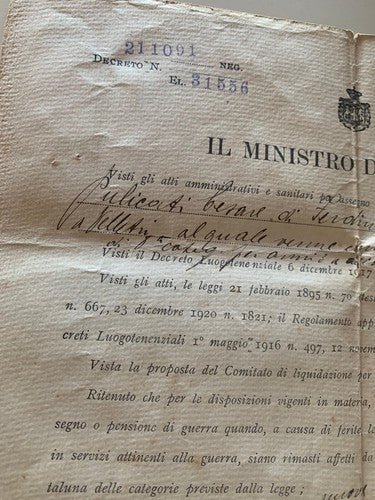 211091
DECRETO N. NEG.
EL. 31556
IL MINISTRO D
Visti gli atti amministrativi e sanitari per assegno
Cesare di
a Velletri al quale venne
di
Visti il Decreto Luogotenenziale 6 dicembre 1917
Visti gli atti, le leggi 21 febbraio 1895 n. 70
n. 667, 23 dicembre 1920 n. 1821; il Regolamento app
creti Luogotenenziali 1° maggio 1916 n. 497, 12 novem
Vista la proposta del Comitato di liquidazione per
Ritenuto che per le disposizioni vigenti in materia,
segno o pensione di guerra quando, a causa di ferite
in servizi attinenti alla guerra, siano rimasti affetti da
taluna delle categorie previste dalla legge;